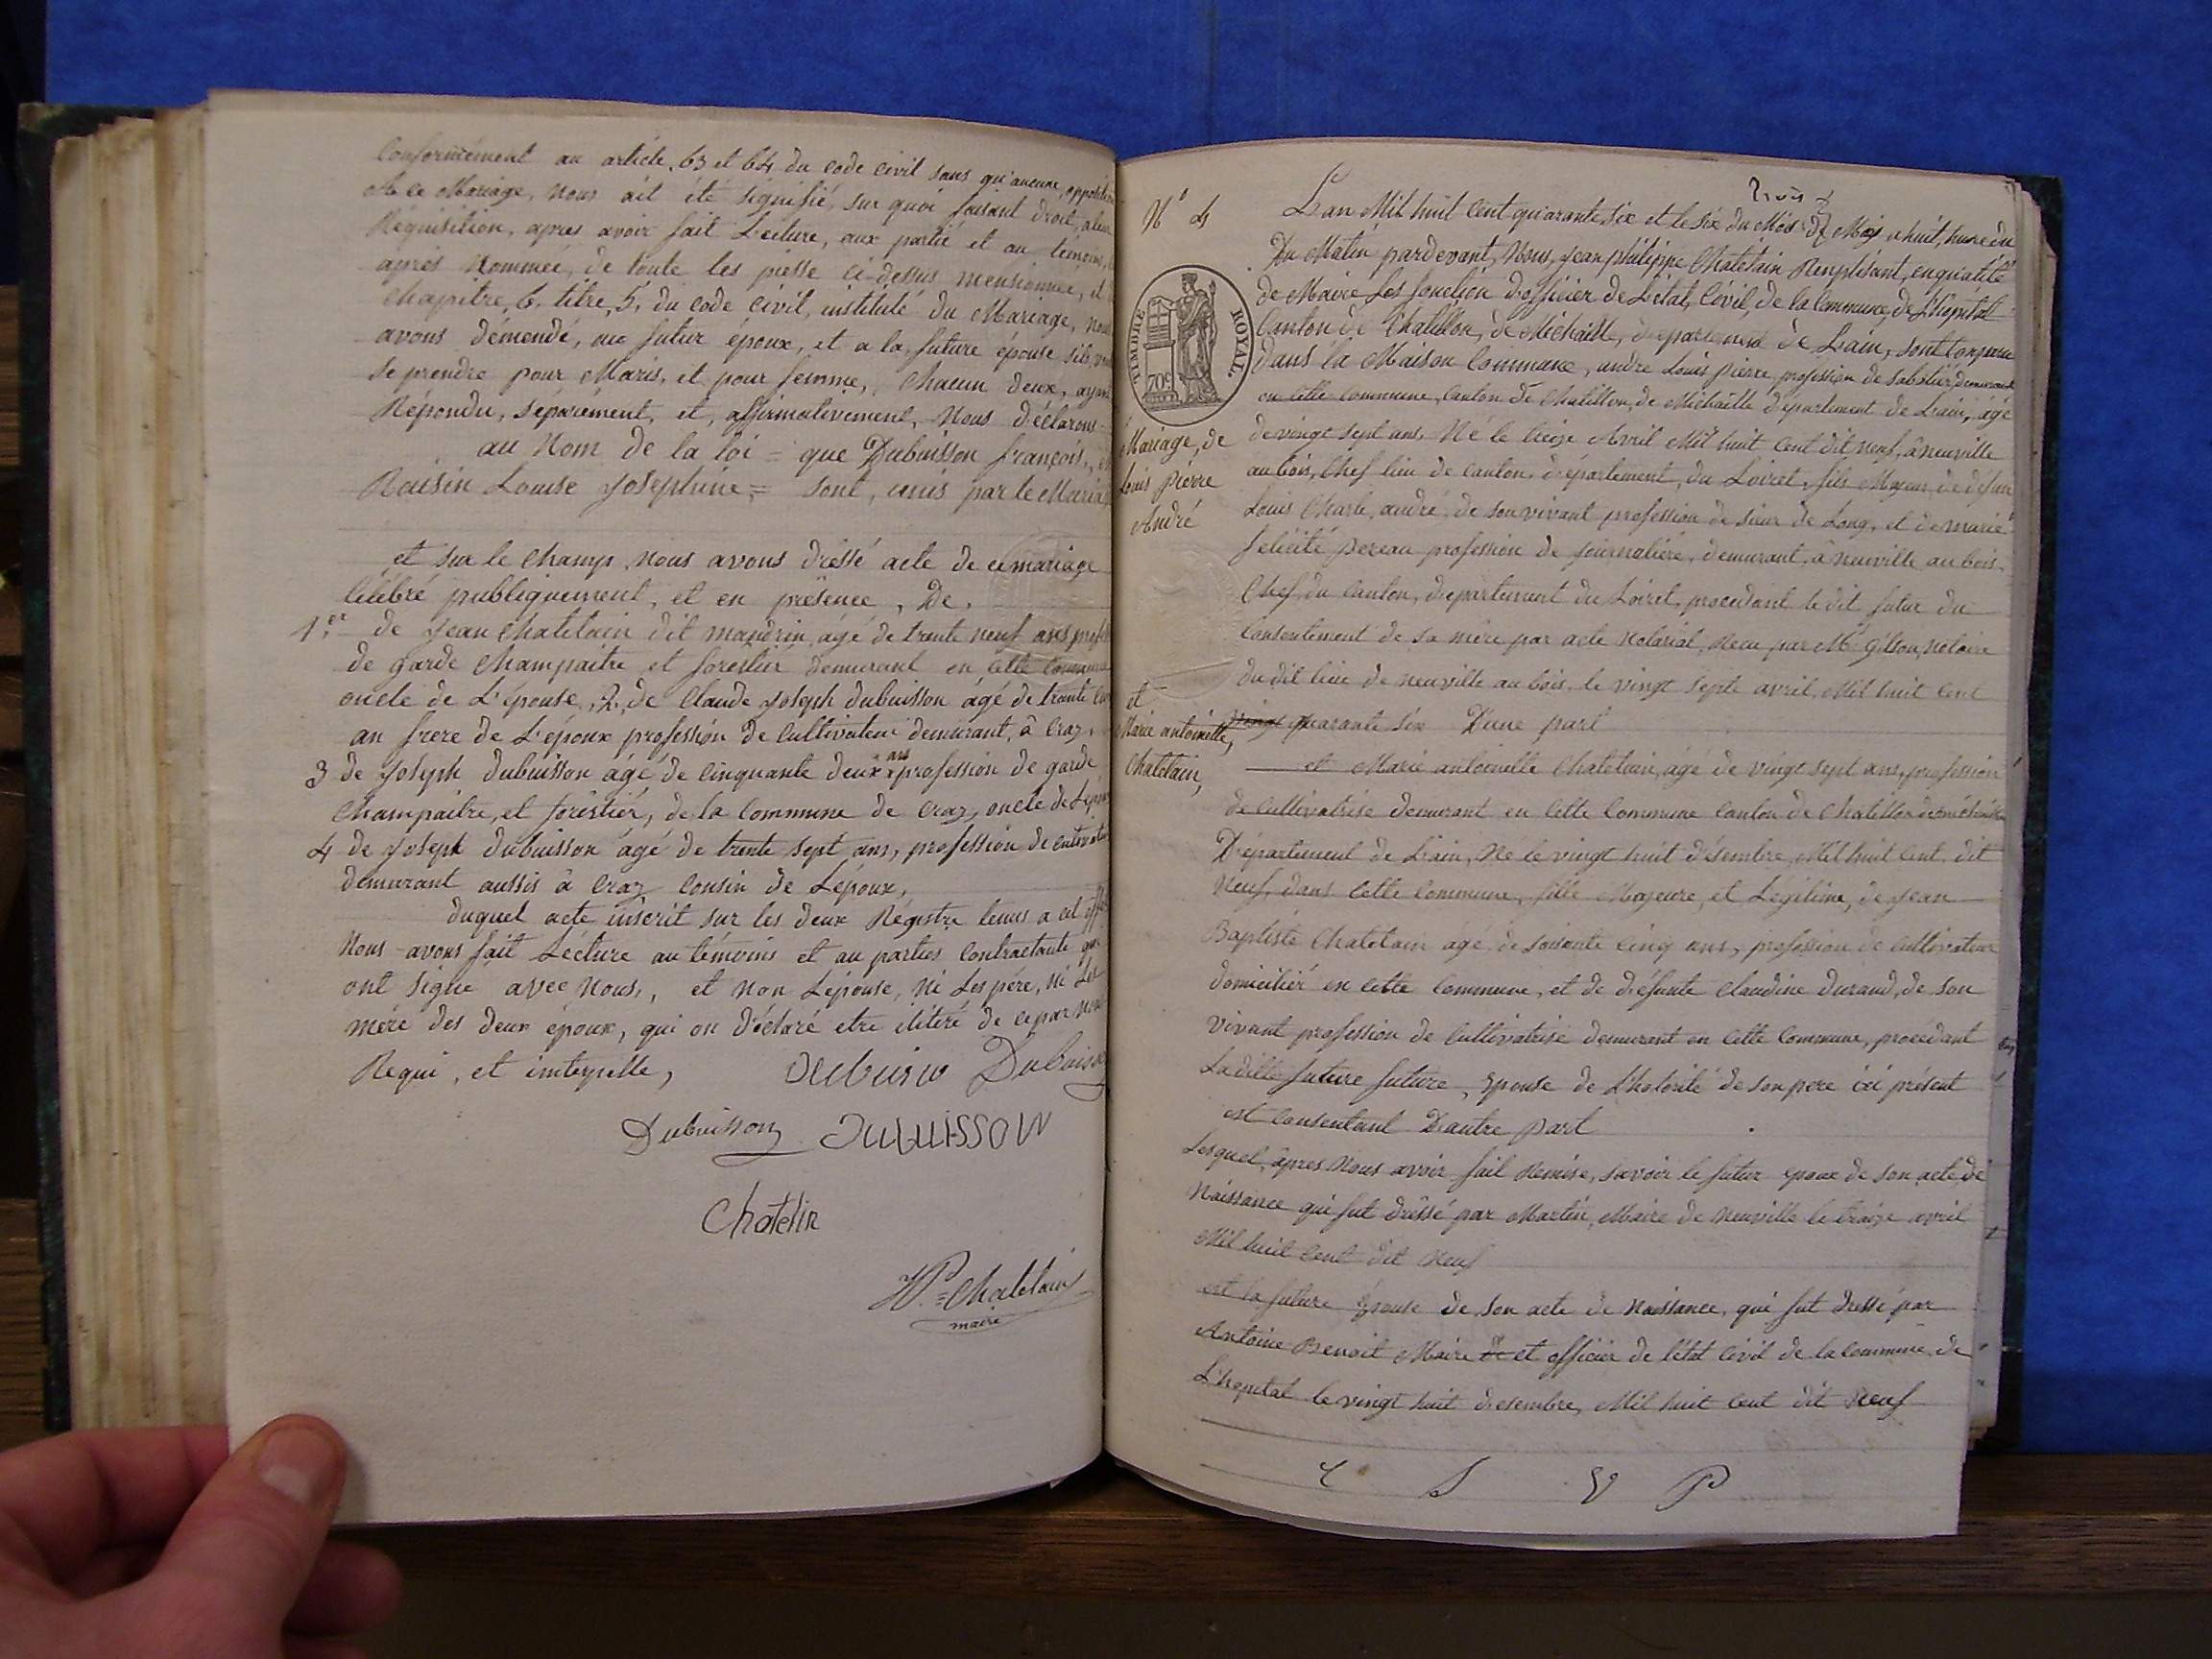 Conformément au article, 63 et 64 du code civil sans qu'aucune, opposition
A ce Mariage, nous ait été signifié, sur quoi faisant droit, a leur
Réquisition, apres avoir fait Lecture, aux partie et au témoins,
après nommée, de toute les piesse ci-dessus mensionnée, et
chapitre, 6, titre, 5, du code civil, institulé du Mariage, nous
avons démendé, au futur époux, et a la future épouse s'ils
se prendre pour Maris, et pour femme, chacun deux, ayant
Répondu, séparément, et, affirmativement, Nous déclarons
au Nom de la loi = que Dubuisson françois,
Raisin Louise Josephine, = sont, unis par le Mariage
et sur le champ nous avons dressé acte de ce mariage
célébré publiquement, et en présence, De,
1er de Jean Chatelain dit mandrin, âgé de trente neuf ans profession
de garde Champaitre et forestier demurant en cette commune
oncle de L'épouse, 2, de Claude Joseph dubuisson âgé de trente
an frere de L'époux profession de Cultivateur demurant, à Craz,
ans
3 de Joseph dubuisson âgé de cinquante deux profession de garde
Champaitre, et forestier, de la Commune de Craz, oncle de L'époux
4 de Joseph dubuisson âgé de trente sept ans, profession de cultivateur
demurant aussis à Craz cousin de Lépoux,
duquel acte inscrit sur les deux Régistre tenus a cet effet
Nous avons fait Lecture au témoins et au parties contractante qui
ont signé avec nous, et Non Lépouse, Ni Les père, Ni Les
mére des deux époux, qui on déclaré etre iliteré de ce par nous
Requi, et interpellé,
Dubuison
Dubuisson DUBUISSON
Chatelin
JP = Chatelain
maire
N° 4
TIMBRE ROYAL
70c
Mariage, de
Louis Piérre
André
et
Marie antoinette,
Chatelain,
trois
L'an Mil huit Cent quarante six et le six du Mois de Mai a huit, heure du
Du Matin pardevant, Nous, Jean philippe Chatelain Remplisant, en qualité
de Maire Les fonction d'officier de L'état, Civil, de la Commune, de L'hopital
Canton de Chatillon, de Michaille, département de Lain, sont comparu
Dans la Maison Commune, andre Louis pierre profession de sabotier demurant
en cette commune, Canton de Chatillon, de Michaille département de Lain, âgé
de vingt sept ans, Né le treize Avril Mil huit cent dit neuf, à neuville
au bois, Chef lieu de Canton, département, du Loiret, fils Majeur de défun
Louis Charle, andré, de son vivant profession de sieur de Long, et de marie
félicité pereau profession de journaliere, demurant, à neuville au bois,
Chef du Canton, département du Loiret, procédant le dit futur du
Consentement de sa mère par acte Notarial, Recu par Mr Gilson, Notaire
du dit lieu de neuville au bois, le vingt septe avril, Mil huit cent
vingt quarante six D'une part
et Marie antoinette Chatelain, âgé de vingt sept ans, profession
de Cultivatrise demurant en cette Commune Canton de Chatillon de michaille
Département de Lain, Né le vingt huit désembre, Mil huit cent, dit
Neuf, dans cette commune, fille Majeure, et Légitime, de Jean
Baptiste Chatelain âgé, de soisente cinq ans, profession de Cultivateur
domicilier en cette commune, et de défunte Claudine Durand, de son
vivant profession de Cultivatrise demurant en cette commune, procédant
La dille future future, Epouse de L'hotorité de son pere ici présent
est consentant D'autre part
Lesquel, âpres Nous avoir fait Remise, savoir le futur epoux de son acte de
Naissance qui fut dréssé par Martin, Maire de neuville le traize avril
Mil huit cent dit neuf
est la future Epouse de son acte de Naissance, qui fut dressé par
Antoine Benoit Maire de et officier de l'état civil de la commune de
L'hopital le vingt huit desembre, Mil huit cent dit Neuf
T S V P